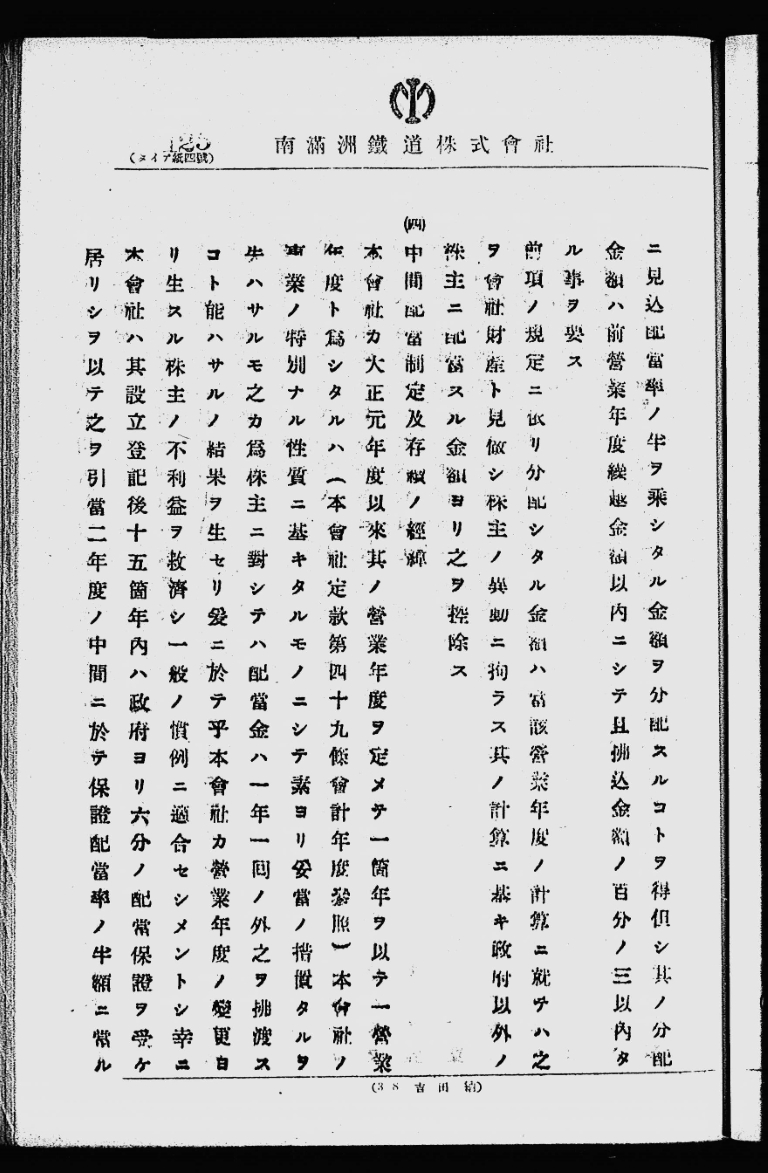 南滿洲鐵道株式會社
(タイプ紙四號)
ニ見込配當率ノ半ヲ乘シタル金額ヲ分配スルコトヲ得但シ其ノ分配
金額ハ前營業年度繰越金額以内ニシテ且拂込金額ノ百分ノ三以内タ
ル事ヲ要ス
前項ノ規定ニ依リ分配シタル金額ハ當該營業年度ノ計算ニ就テハ之
ヲ會社財産ト見做シ株主ノ異動ニ拘ラス其ノ計算ニ基キ政府以外ノ
株主ニ配當スル金額ヨリ之ヲ控除ス
(四)中間配當制定及存續ノ經緯
本會社カ大正元年度以來其ノ營業年度ヲ定メテ一箇年ヲ以テ一營業
年度ト爲シタルハ(本會社定款第四十九條會計年度參照)本會社ノ
事業ノ特別ナル性質ニ基キタルモノニシテ素ヨリ妥當ノ措置タルヲ
失ハサルモ之カ爲株主ニ對シテハ配當金ハ一年一囘ノ外之ヲ拂渡ス
コト能ハサルノ結果ヲ生セリ爰ニ於テ乎本會社カ營業年度ノ變更ヨ
リ生スル株主ノ不利益ヲ救濟シ一般ノ慣例ニ適合セシメントシ幸ニ
本會社ハ其設立登記後十五箇年内ハ政府ヨリ六分ノ配當保證ヲ受ケ
居リシヲ以テ之ヲ引當二年度ノ中間ニ於テ保證配當率ノ半額ニ當ル